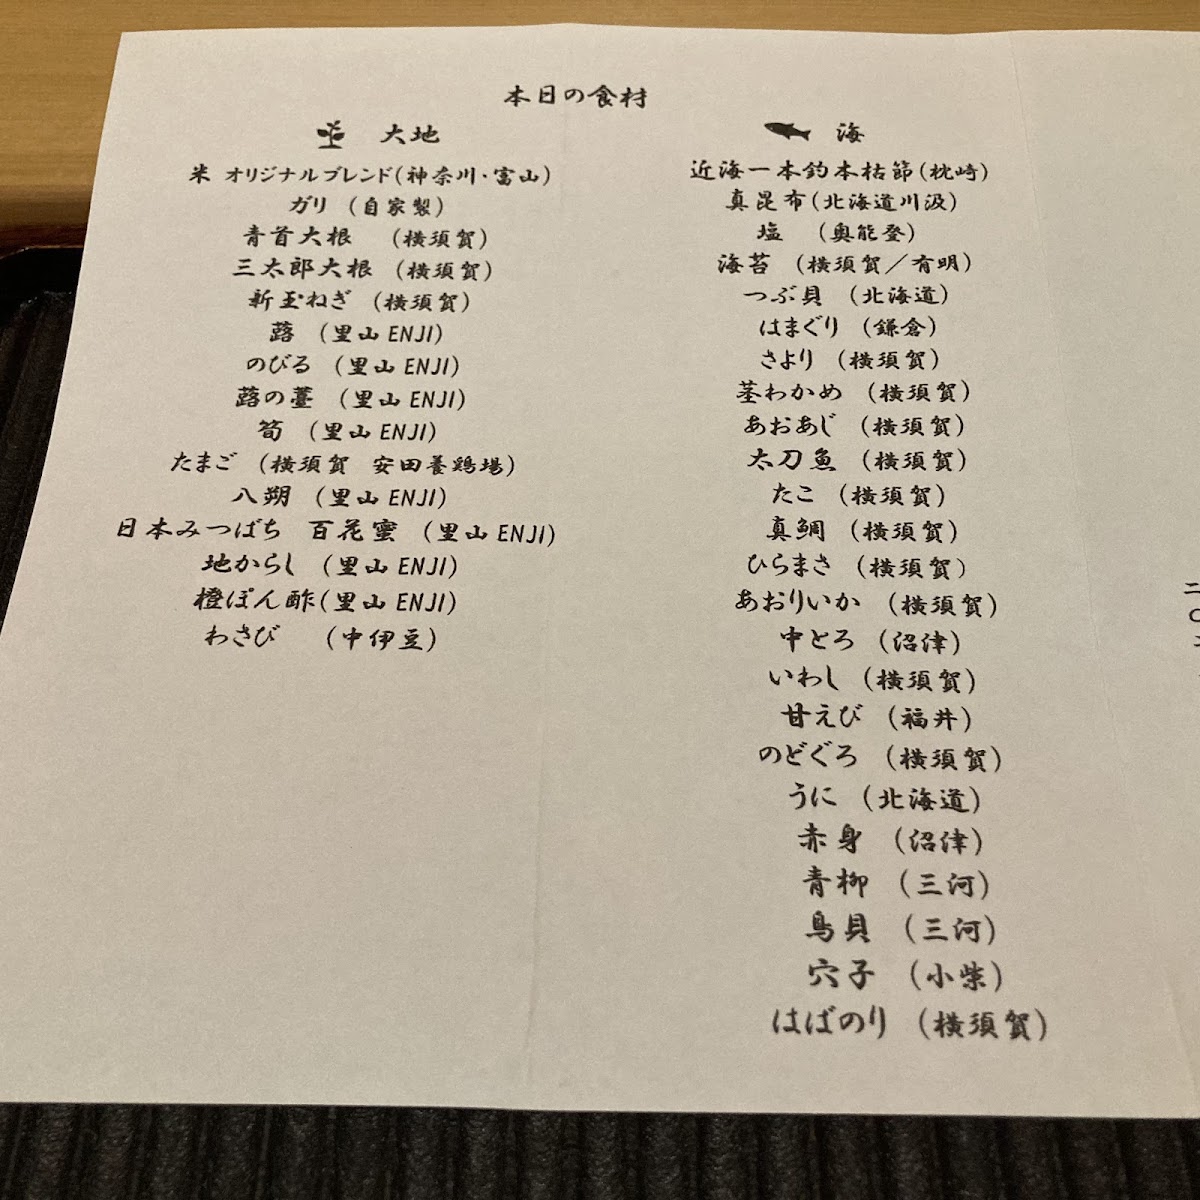 本日の食材
大地
米 オリジナルブレンド(神奈川・富山)
ガリ (自家製)
青首大根 (横須賀)
三太郎大根 (横須賀)
新玉ねぎ (横須賀)
蕗 (里山 ENJI)
のびる (里山 ENJI)
蕗の薹 (里山 ENJI)
筍 (里山 ENJI)
たまご (横須賀 安田養鶏場)
八朔 (里山 ENJI)
日本みつばち 百花蜜 (里山 ENJI)
地からし (里山 ENJI)
橙ぽん酢(里山 ENJI)
わさび (中伊豆)
海
近海一本釣本枯節(枕崎)
真昆布(北海道川汲)
塩 (奥能登)
海苔 (横須賀/有明)
つぶ貝 (北海道)
はまぐり (鎌倉)
さより (横須賀)
茎わかめ (横須賀)
あおあじ (横須賀)
太刀魚 (横須賀)
たこ (横須賀)
真鯛 (横須賀)
ひらまさ (横須賀)
あおりいか (横須賀)
中とろ (沼津)
いわし (横須賀)
甘えび (福井)
のどぐろ (横須賀)
うに (北海道)
赤身 (沼津)
青柳 (三河)
鳥貝 (三河)
穴子 (小柴)
はばのり (横須賀)